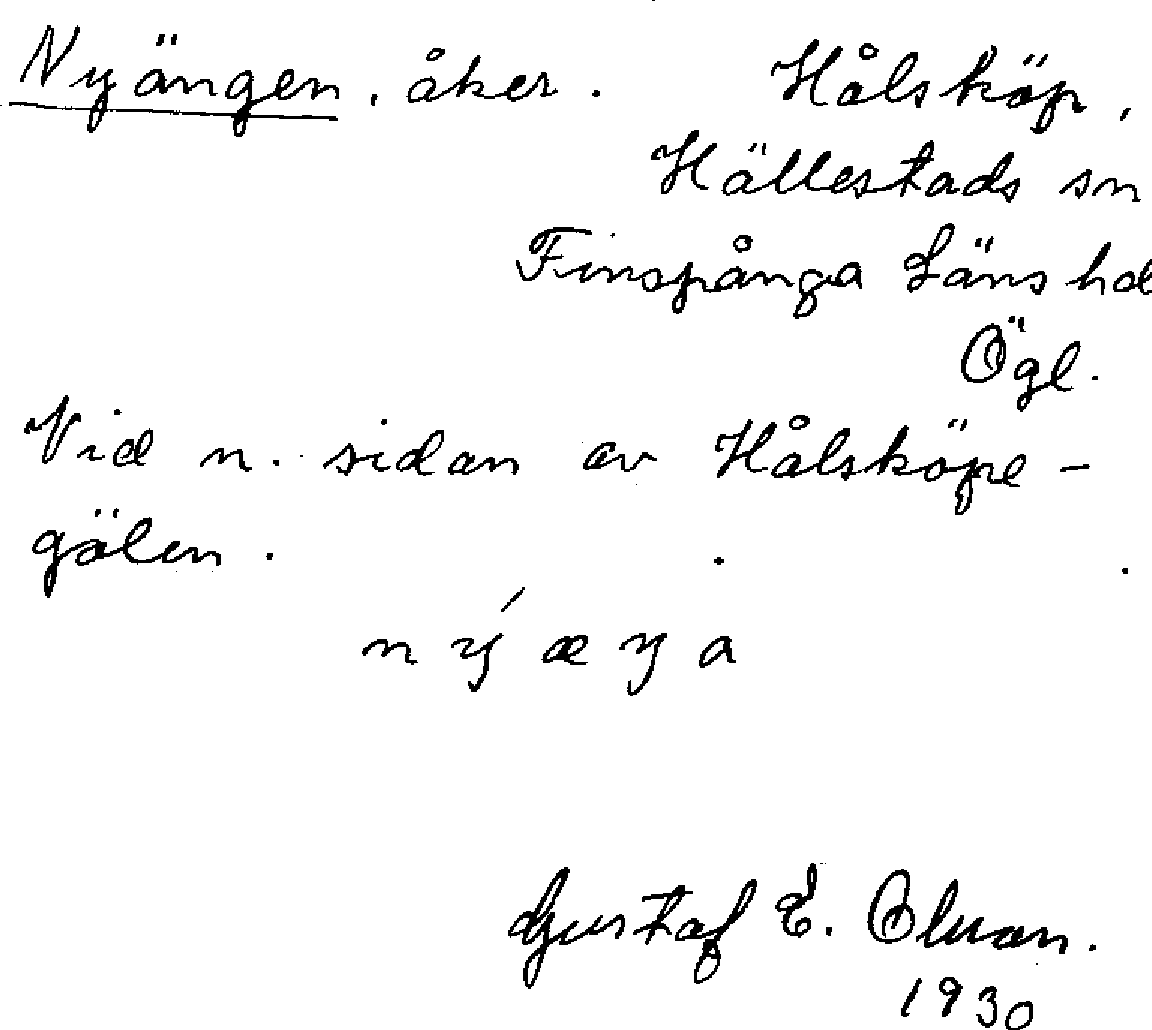 Nyängen, åker. Hålsköp,
Hällestads sn
Finspånga Läns hd
Ögl.
Vid n. sidan av Hålsköpe-
gölen.
nýæŋa
Gustaf E. Olsson.
1930